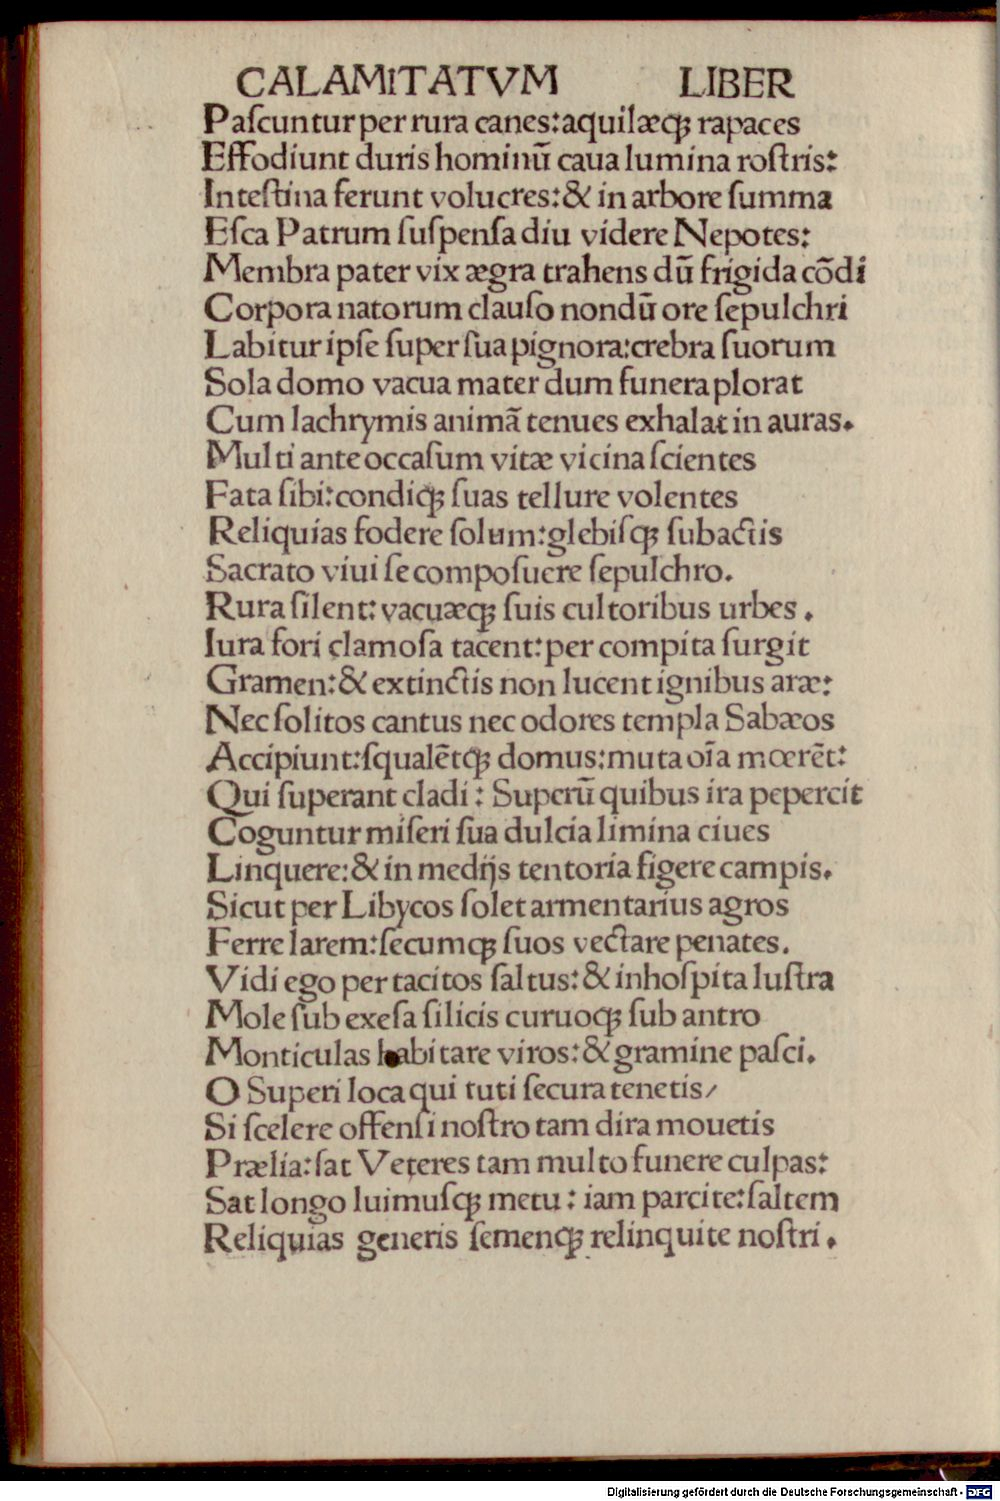 CALAMITATVM LIBER
Paſcuntur per rura canes: aquilæqꝫ rapaces
Effodiunt duris hominū caua lumina roſtris:
Inteſtina ferunt volucres: & in arbore ſumma
Eſca Patrum ſuſpenſa diu videre Nepotes:
Membra pater vix ægra trahens dū frigida cōdi
Corpora natorum clauſo nondū ore ſepulchri
Labitur ipſe ſuper ſua pignora: crebra ſuorum
Sola domo vacua mater dum funera plorat
Cum lachrymis animā tenues exhalat in auras.
Multi ante occaſum vitæ vicina ſcientes
Fata ſibi: condiqꝫ ſuas tellure volentes
Reliquias fodere ſolum: glebiſqꝫ ſubactis
Sacrato viui ſe compoſuere ſepulchro.
Rura ſilent: vacuæqꝫ ſuis cultoribus urbes.
Iura fori clamoſa tacent: per compita ſurgit
Gramen: & extinctis non lucent ignibus aræ:
Nec ſolitos cantus nec odores templa Sabæos
Accipiunt: ſqualētqꝫ domus: muta oīa mœrēt:
Qui ſuperant cladi: Superū quibus ira pepercit
Coguntur miſeri ſua dulcia limina ciues
Linquere: & in medijs tentoria figere campis.
Sicut per Libycos ſolet armentarius agros
Ferre larem: ſecumqꝫ ſuos vectare penates.
Vidi ego per tacitos ſaltus: & inhoſpita luſtra
Mole ſub exeſa ſilicis curuoqꝫ ſub antro
Monticulas habitare viros: & gramine paſci.
O Superi loca qui tuti ſecura tenetis/
Si ſcelere offenſi noſtro tam dira mouetis
Prælia: ſat Veteres tam multo funere culpas:
Sat longo luimuſqꝫ metu: iam parcite: ſaltem
Reliquias generis ſemenqꝫ relinquite noſtri.
Digitalisierung gefördert durch die Deutsche Forschungsgemeinschaft - DFG